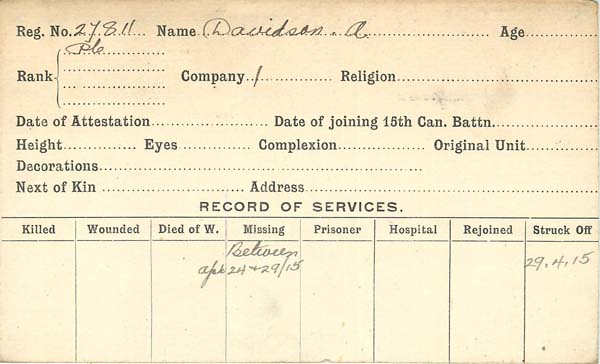 Reg. No. 27811 Name Davidson. A Age
Rank Pte Company 1 Religion
Date of Attestation Date of joining 15th Can. Battn.
Height Eyes Complexion Original Unit
Decorations
Next of Kin Address
RECORD OF SERVICES.
Killed Wounded Died of W. Missing Prisoner Hospital Rejoined Struck Off
Between 29.4.15
apl 24 + 29/15